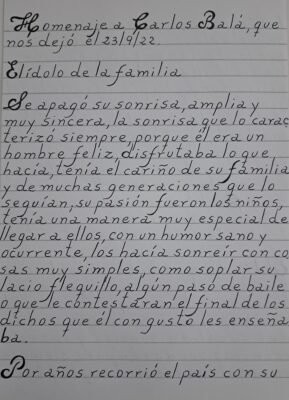 Homenaje a Carlos Balá, que
nos dejó el 23/9/22.
El ídolo de la familia
Se apagó su sonrisa, amplia y
muy sincera, la sonrisa que lo carac
terizó siempre, porque él era un
hombre feliz, disfrutaba lo que
hacía, tenía el cariño de su familia
y de muchas generaciones que lo
seguían, su pasión fueron los niños,
tenía una manera muy especial de
llegar a ellos, con un humor sano y
ocurrente, los hacía sonreír con co
sas muy simples, como soplar su
lacio flequillo, algún paso de baile
o que le contestaran el final de los
dichos que él con gusto les enseña
ba.
Por años recorrió el país con su